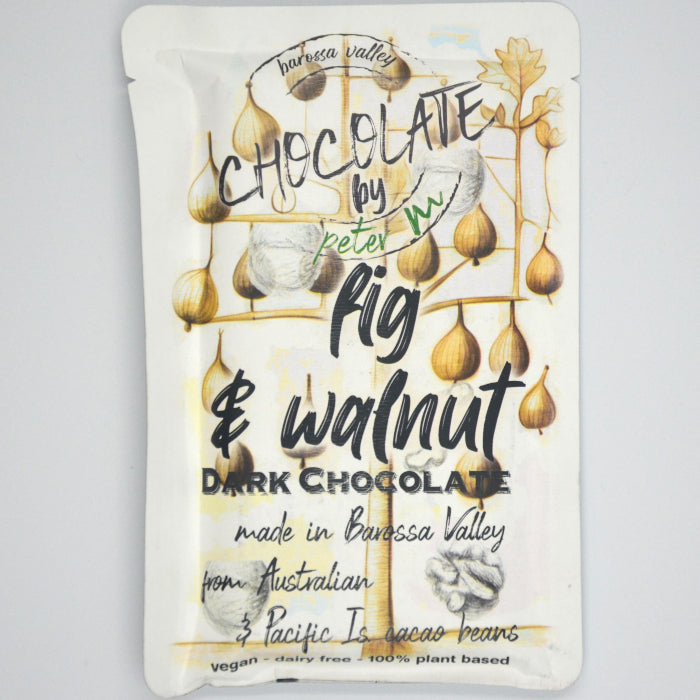 barossa valley
CHOCOLATE
by
peter m
fig
& walnut
DARK CHOCOLATE
made in Barossa Valley
from Australian
& Pacific Is cacao beans
vegan - dairy free - 100% plant based